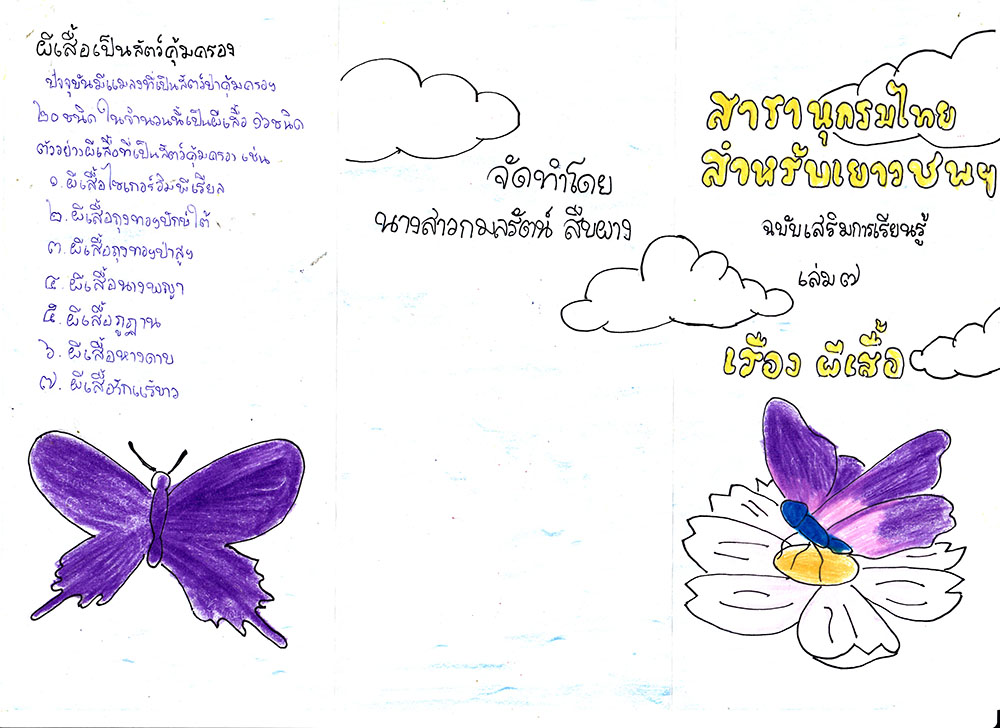 ผีเสื้อเป็นสัตว์คุ้มครอง
ปัจจุบันมีแมลงที่เป็นสัตว์ป่าคุ้มครอง
๒๐ ชนิด ในจำนวนนี้เป็นผีเสื้อ ๑๖ ชนิด
ตัวอย่างผีเสื้อที่เป็นสัตว์คุ้มครอง เช่น
๑. ผีเสื้อไซเกอร์อิมพีเรียล
๒. ผีเสื้อถุงทองปักษ์ใต้
๓. ผีเสื้อถุงทองป่าสูง
๔. ผีเสื้อนางพญา
๕. ผีเสื้อภูฏาน
๖. ผีเสื้อหางดาบ
๗. ผีเสื้อรักแร้ขาว
จัดทำโดย
นางสาวกมลรัตน์ สืบผาง
สารานุกรมไทย
สำหรับเยาวชนฯ
ฉบับเสริมการเรียนรู้
เล่ม ๗
เรื่อง ผีเสื้อ